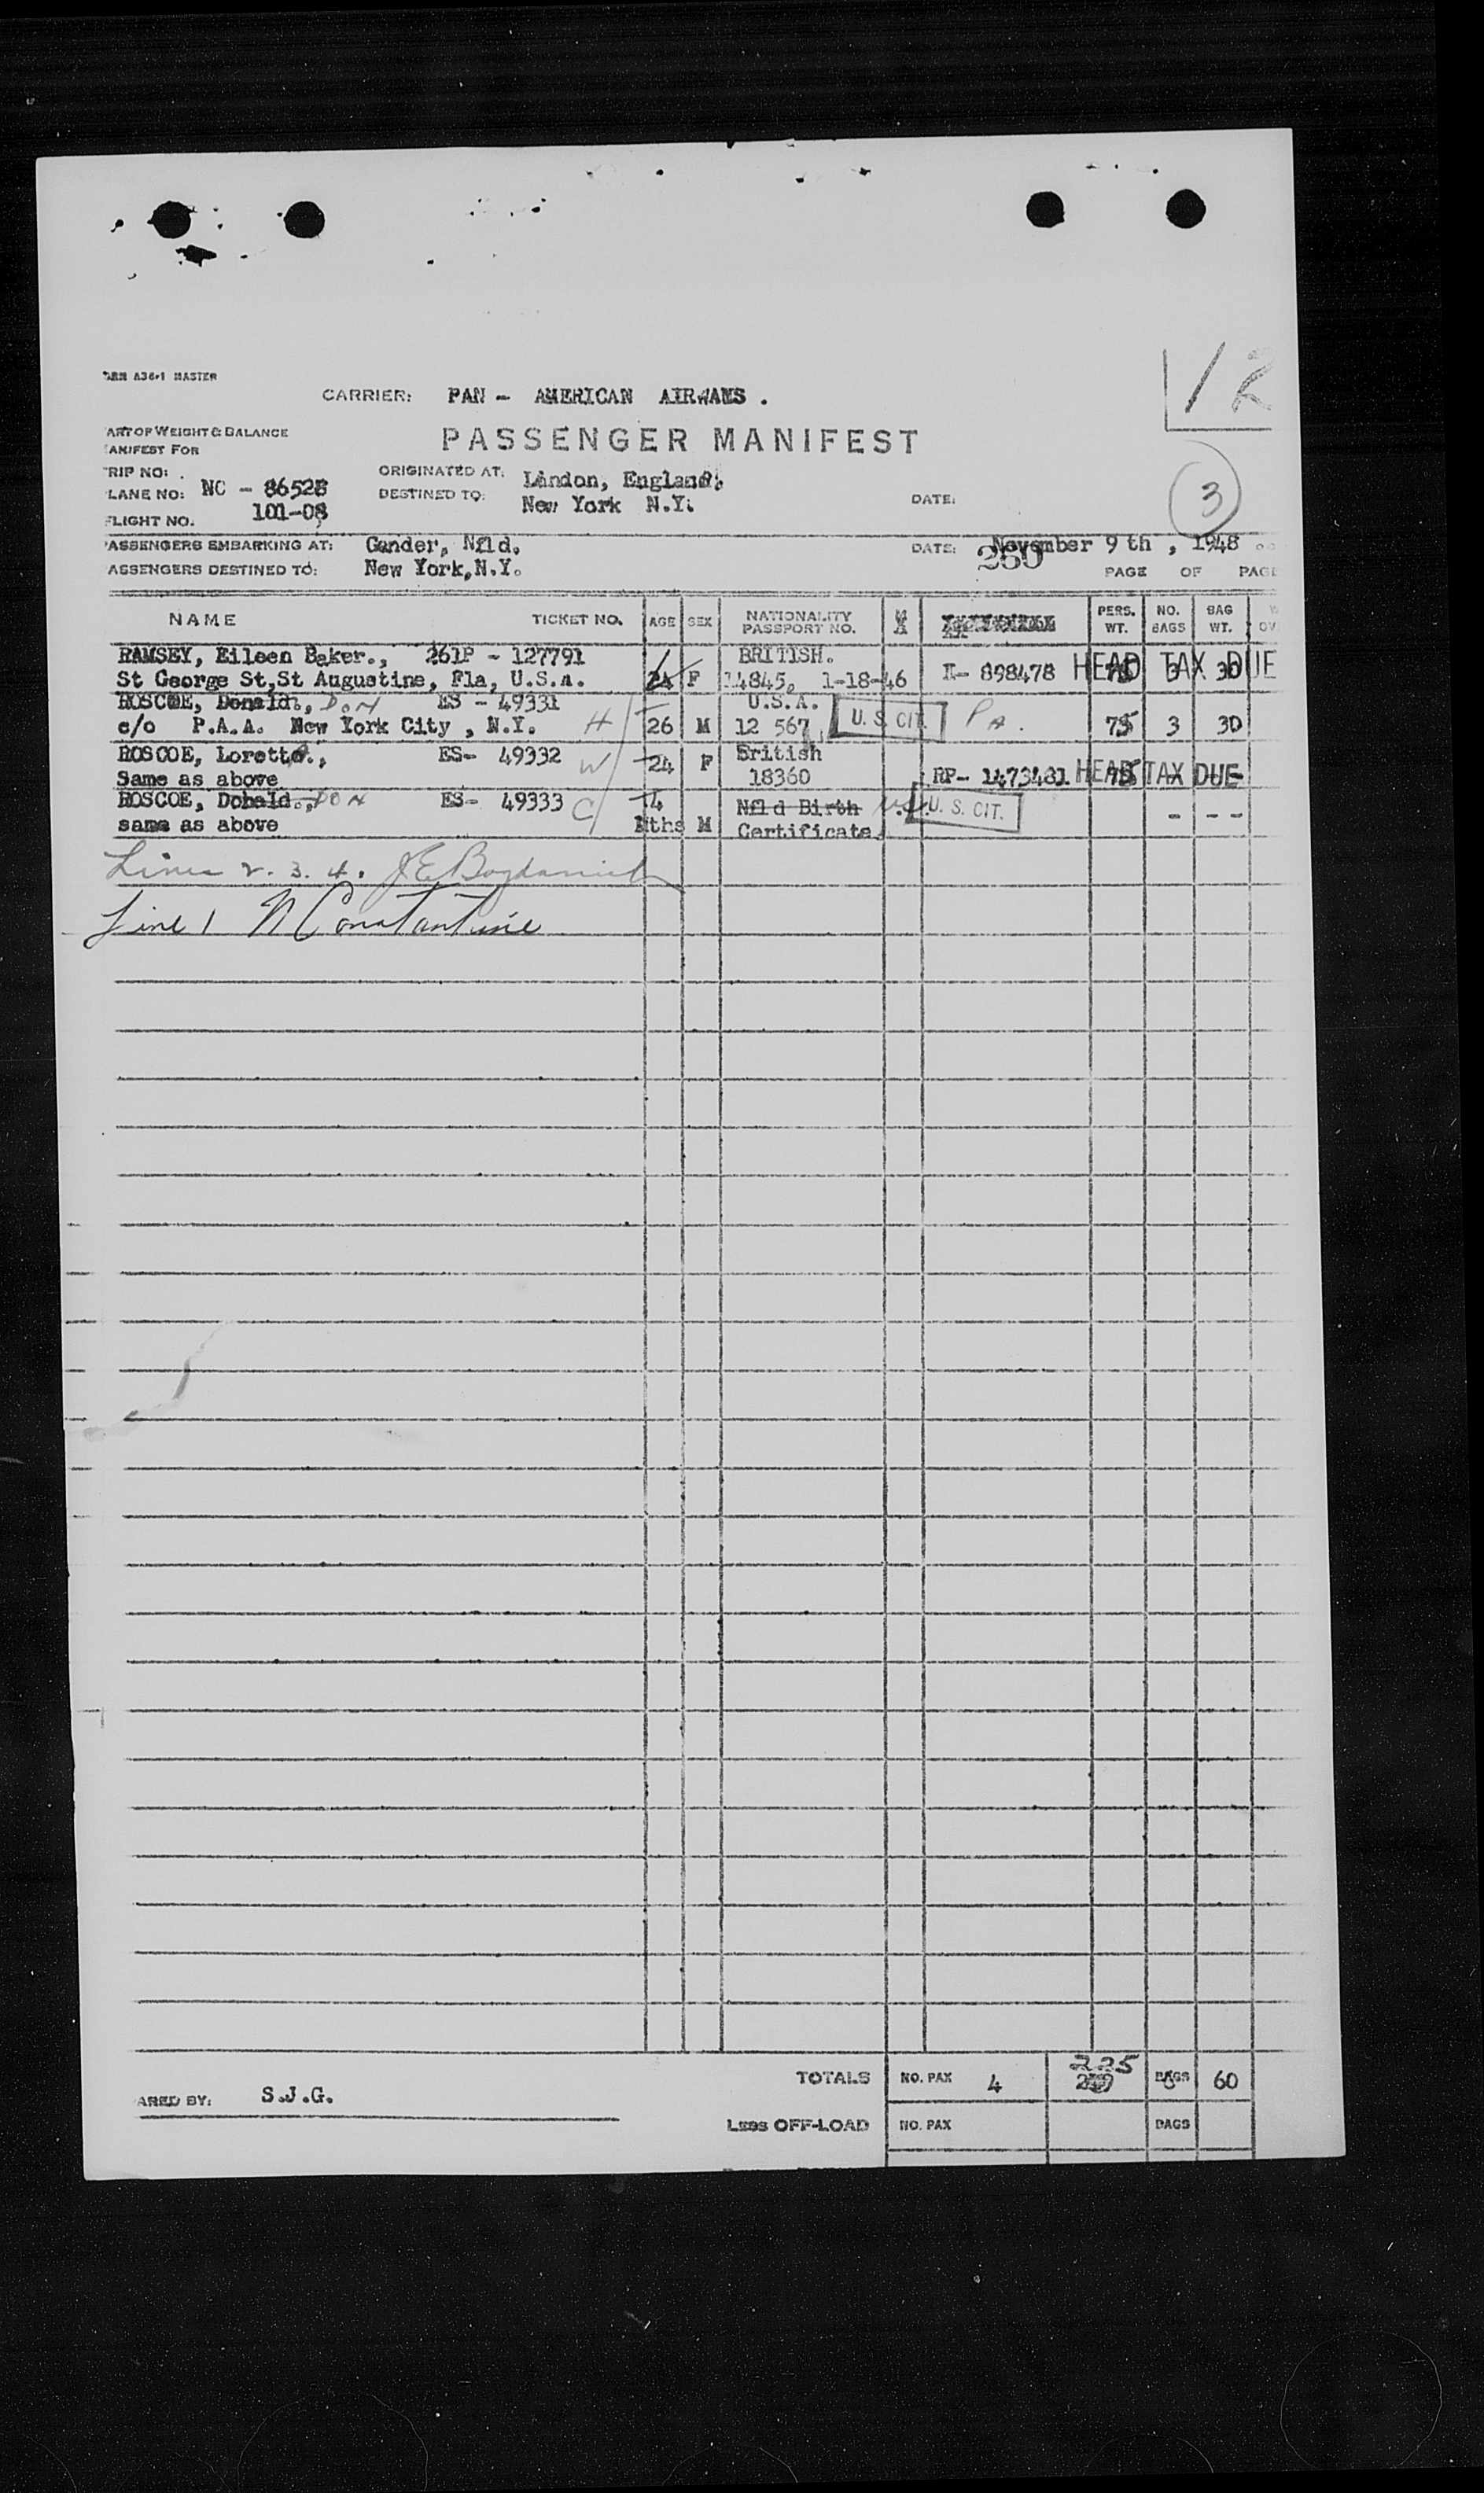 12
ARM A36-1 MASTER
CARRIER: PAN - AMERICAN AIRWAYS .
ART OF WEIGHT & BALANCE
ANIFEST FOR
PASSENGER MANIFEST
RIP NO: .
ORIGINATED AT: London, England.
LANE NO: NC - 86528
DESTINED TO: New York N.Y.
DATE:
3
FLIGHT NO. 101-08
ASSENGERS EMBARKING AT: Gander, Nfld.
DATE: November 9 th , 1948
250
ASSENGERS DESTINED TO: New York,N.Y.
PAGE OF PAGE
NAME TICKET NO. AGE SEX NATIONALITY PASSPORT NO. PERS. WT. NO. BAGS BAG WT. OV
RAMSEY, Eileen Baker., 261P - 127791 BRITISH.
St George St,St Augustine, Fla, U.S.A. 24 F 14845, 1-18-46 II- 898478 HEAD TAX DUE
ROSCOE, Donald., DON ES - 49331 U.S.A.
c/o P.A.A. New York City , N.Y. H 26 M 12 567 U. S. CIT. 75 3 30
ROSCOE, Loretta., ES- 49332 W 24 F British
Same as above 18360 RP- 1473481 HEAD TAX DUE
ROSCOE, Donald., DON ES- 49333 C 4 Nfld Birth U. S. CIT.
same as above Mths M Certificate. - - - -
Lines 2. 3. 4.
Line 1 N Constantine
TOTALS NO. PAX 4 225 BAGS 60
ARED BY: S.J.G.
Less OFF-LOAD NO. PAX BAGS